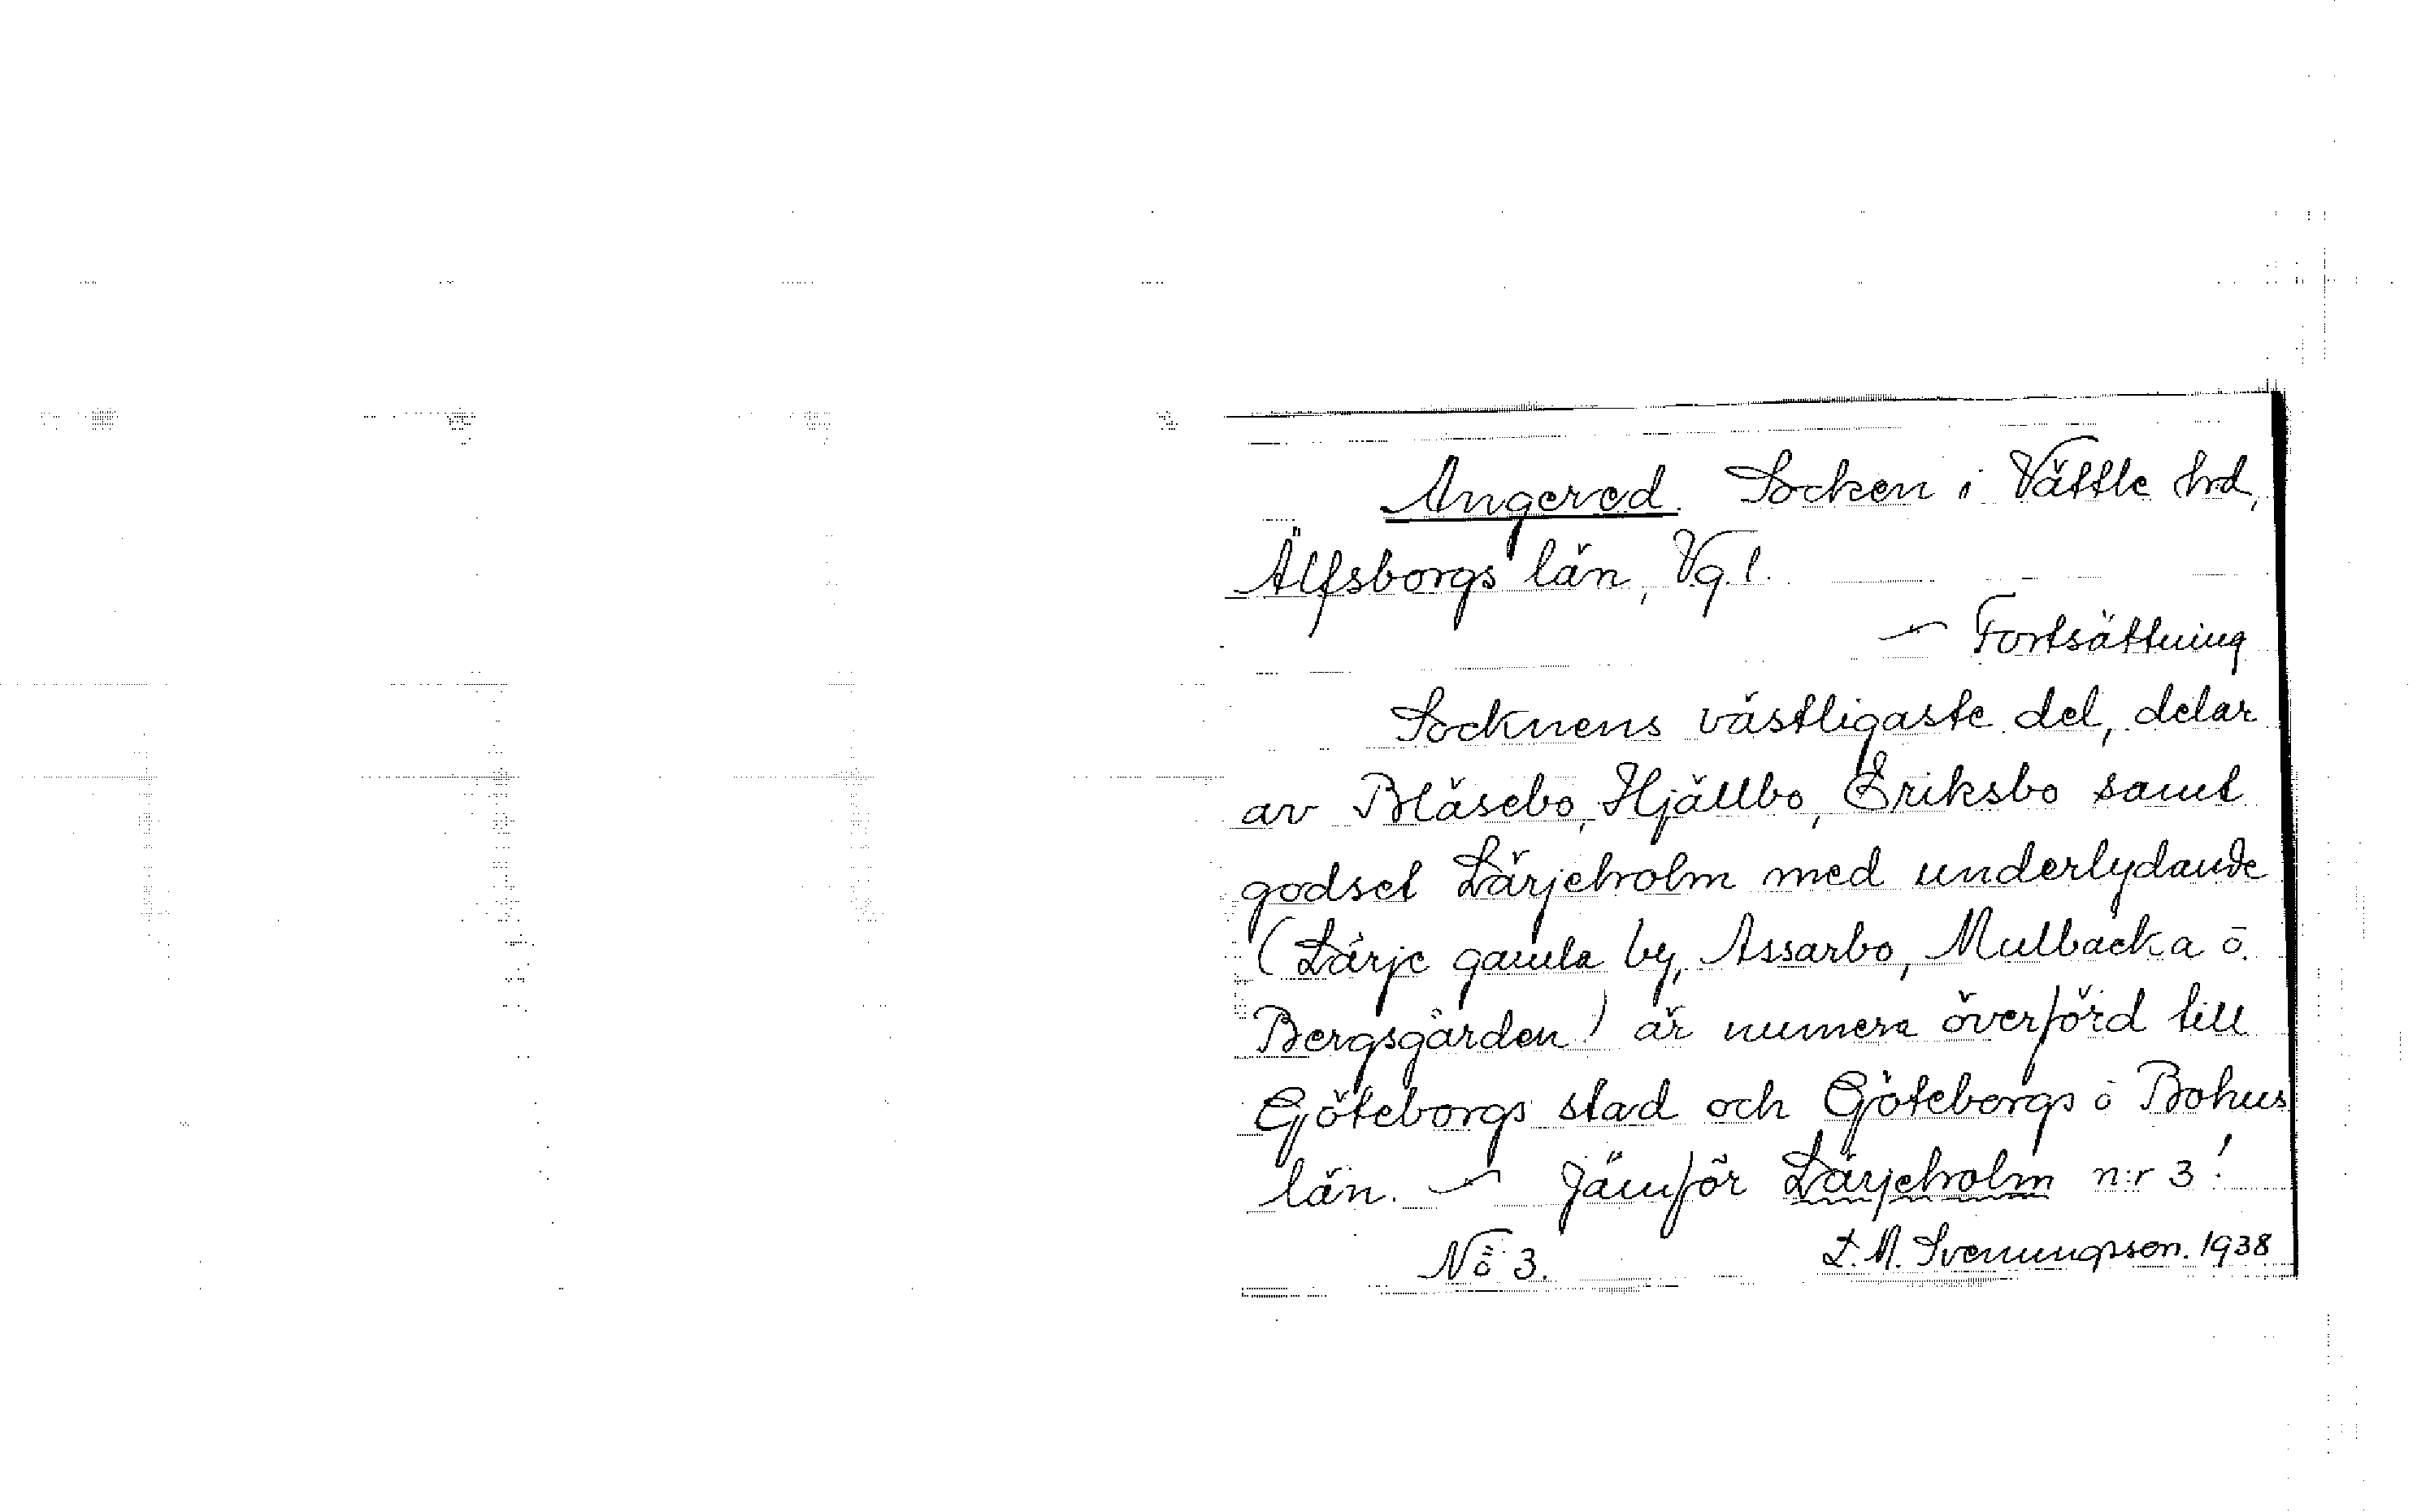 Angered. Socken i Vättle hrd,
Älfsborgs län, Vg l.
— Fortsättning
Socknens västligaste del, delar
av Bläsebo, Hjällbo, Eriksbo samt
godset Lärjeholm med underlydande
(Lärje gamla by, Assarbo, Mulbacka o.
Bergsgården) är numera överförd till
Göteborgs stad och Göteborgs o Bohus
län. — Jämför Lärjeholm n:r 3!
No 3. L. M. Svenungsson. 1938